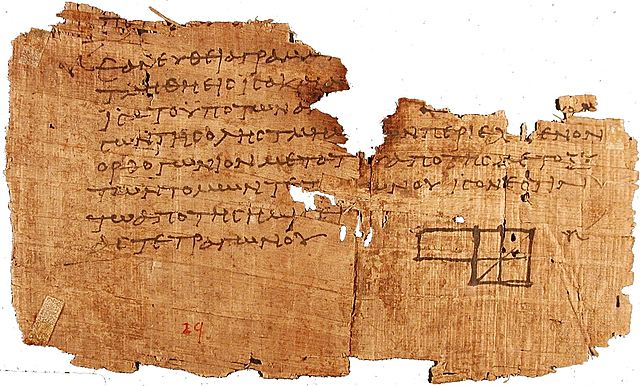 ΕΑΝ ΕΥΘΕΙΑ ΓΡΑΜ
ΤΜΗΘΗ ΕΙϹ ΙϹΑ ΚΑΙ
ΙϹΑ ΤΟ ΥΠΟ ΤΩΝ Α
ΤΩΝ ΤΗϹ ΟΛΗϹ ΤΜΗΜΑ ΩΝ ΠΕΡΙΕΧΟΜΕΝΟΝ
ΟΡΘΟΓΩΝΙΟΝ ΜΕΤΑ ΤΟΥ ΑΠΟ ΤΗϹ ΜΕΤΟΞΥ
ΤΩΝ ΤΟΜΩΝ ΤΕΤ ΩΝΟΥ ΙϹΟΝ ΕϹΤΙΝ
ΤΩ ΑΠΟ ΤΗϹ ΗΜΙϹΕΙ
ΑϹ ΤΕΤΡΑΓΩΝΟΥ
29